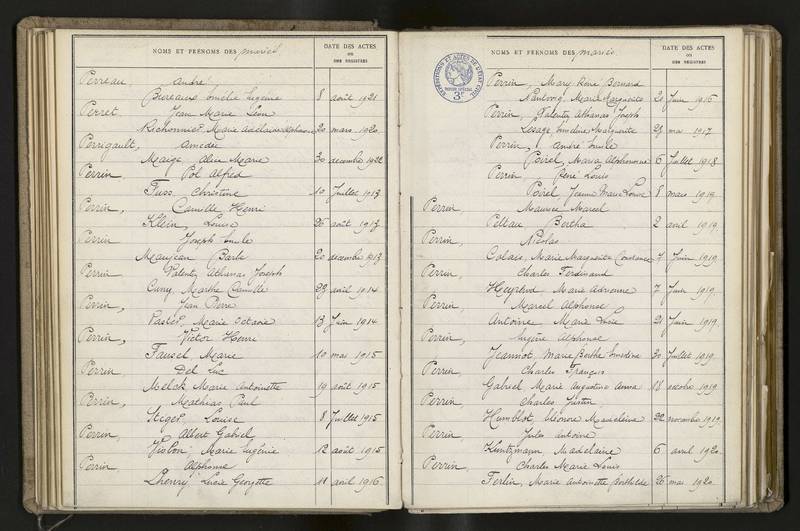 NOMS ET PRÉNOMS DES mariés
DATE DES ACTES
OU
DES REGISTRES
Perreau, André
Bureaux Emélie Eugénie 8 août 1921
Perret, Jean Marie Léon
Richonnier, Marie Adelaïde 20 mars 1920
Perrigault, Amédée
Maige Alice Marie 30 décembre 1922
Perrin, Pol Alfred
Fuss, Christine 10 Juillet 1913
Perrin, Camille Henri
Klein, Louise 26 août 1913
Perrin Joseph Emile
Maujean Barbe 20 décembre 1913
Perrin Valentin Athanas Joseph
Cuny Marthe Camille 23 avril 1914
Perrin, Jean Pierre
Marie Octavie 13 Juin 1914
Perrin, Victor Henri
Fausel Marie 10 mai 1915
Perrin Del Luc
Melck Marie Antoinette 19 août 1915
Perrin, Mathias Paul
Steger Louise 8 Juillet 1915
Perrin, Albert Gabriel
Violon Marie Eugénie 12 août 1915
Perrin, Alphonse
Lhenry Lucie Georgette 11 avril 1916
NOMS ET PRÉNOMS DES mariés
DATE DES ACTES
OU
DES REGISTRES
EXPÉDITIONS ET ACTES DE L'ÉTAT CIVIL
3F
Perrin, Mary René Bernard
Marie Marguerite 20 Juin 1916
Perrin, Valentin Athanas Joseph
Lesage, Emeline Marguerite 29 mai 1917
Perrin, André Emile
Poirel, Maria Alphonsine 6 Juillet 1918
Perrin René Louis
Poirel, Jeanne Marie Louise 8 mars 1919
Perrin, Maurice Marcel
Peltau Bertha 2 avril 1919
Perrin, Nicolas
Calais, Marie Marguerite Constance 7 Juin 1919
Perrin Charles Ferdinand
Marie Adrienne 7 Juin 1919
Perrin, Marcel Alphonse
Antoine Marie Lucie 21 Juin 1919
Perrin, Eugène Alphonse
Jeannot, Marie Berthe Emeline 30 Juillet 1919
Perrin Charles François
Gabriel Marie Augustine Anna 18 octobre 1919
Perrin, Charles Justin
Humblot, Eléonore Madeleine 22 novembre 1919
Perrin, Jules Antoine
Kuntzmann Madelaine 6 avril 1920
Perrin, Charles Marie Louis
Ferlin, Marie Antoinette Bathilde 26 mai 1920